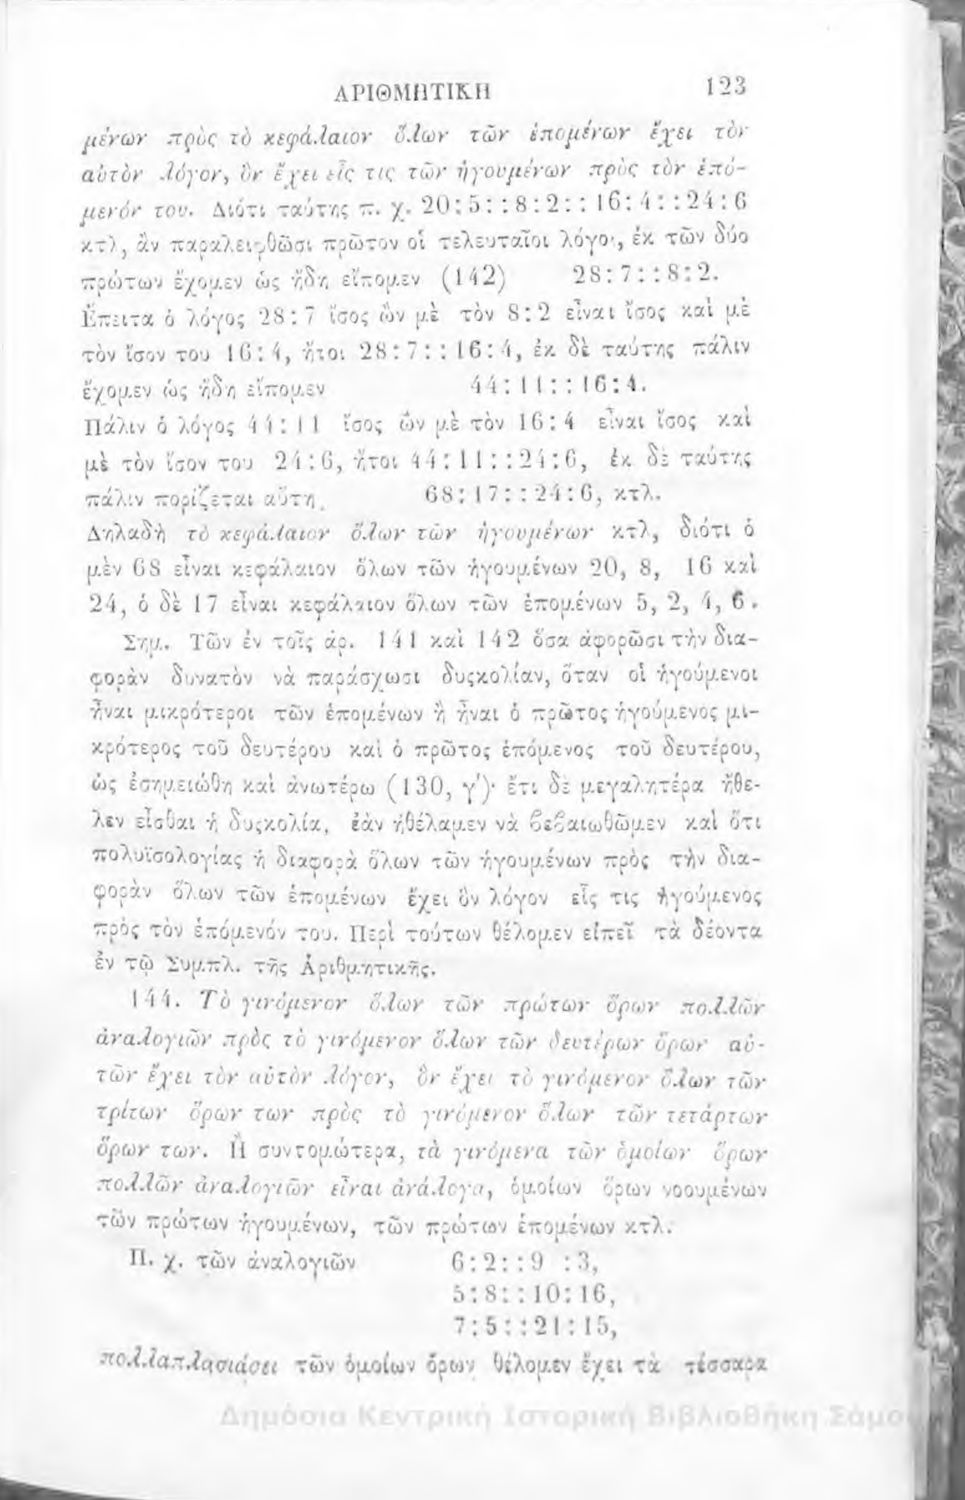 ΑΡΙΘΜΗΤΙΚΗ 123
μένων πρὸς τὸ κεφάλαιον ὅλων τῶν ἑπομένων ἔχει τὸν
αὐτὸν λόγον, ὃν ἔχει εἷς τις τῶν ἡγουμένων πρὸς τὸν ἑπό-
μενόν του. Διότι ταύτης π. χ. 20:5::8:2::16:4::24:6
κτλ, ἂν παραλειφθῶσι πρῶτον οἱ τελευταῖοι λόγοι, ἐκ τῶν δύο
πρώτων ἔχομεν ὡς ἤδη εἴπομεν (142) 28:7::8:2.
Ἔπειτα ὁ λόγος 28:7 ἴσος ὢν μὲ τὸν 8:2 εἶναι ἴσος καὶ μὲ
τὸν ἴσον του 16:4, ἤτοι 28:7::16:4, ἐκ δὲ ταύτης πάλιν
ἔχομεν ὡς ἤδη εἴπομεν 44:11::16:4.
Πάλιν ὁ λόγος 44:11 ἴσος ὢν μὲ τὸν 16:4 εἶναι ἴσος καὶ
μὲ τὸν ἴσον του 24:6, ἤτοι 44:11::24:6, ἐκ δὲ ταύτης
πάλιν πορίζεται αὕτη, 68:17::24:6, κτλ.
Δηλαδὴ τὸ κεφάλαιον ὅλων τῶν ἡγουμένων κτλ, διότι ὁ
μὲν 68 εἶναι κεφάλαιον ὅλων τῶν ἡγουμένων 20, 8, 16 καὶ
24, ὁ δὲ 17 εἶναι κεφάλαιον ὅλων τῶν ἑπομένων 5, 2, 4, 6.
Σημ. Τῶν ἐν τοῖς ἀρ. 141 καὶ 142 ὅσα ἀφορῶσι τὴν δια-
φορὰν δυνατὸν νὰ παράσχωσι δυςκολίαν, ὅταν οἱ ἡγούμενοι
ἦναι μικρότεροι τῶν ἑπομένων ἢ ἦναι ὁ πρῶτος ἡγούμενος μι-
κρότερος τοῦ δευτέρου καὶ ὁ πρῶτος ἑπόμενος τοῦ δευτέρου,
ὡς ἐσημειώθη καὶ ἀνωτέρω (130, γ')· ἔτι δὲ μεγαλητέρα ἤθε-
λεν εἶσθαι ἡ δυςκολία, ἐὰν ἠθέλαμεν νὰ βεβαιωθῶμεν καὶ ὅτι
πολυϊσολογίας ἡ διαφορὰ ὅλων τῶν ἡγουμένων πρὸς τὴν δια-
φορὰν ὅλων τῶν ἑπομένων ἔχει ὃν λόγον εἷς τις ἡγούμενος
πρὸς τὸν ἑπόμενόν του. Περὶ τούτων θέλομεν εἰπεῖ τὰ δέοντα
ἐν τῷ Συμπλ. τῆς Ἀριθμητικῆς.
144. Τὸ γινόμενον ὅλων τῶν πρώτων ὅρων πολλῶν
ἀναλογιῶν πρὸς τὸ γινόμενον ὅλων τῶν δευτέρων ὅρων αὐ-
τῶν ἔχει τὸν αὐτὸν λόγον, ὃν ἔχει τὸ γινόμενον ὅλων τῶν
τρίτων ὅρων των πρὸς τὸ γινόμενον ὅλων τῶν τετάρτων
ὅρων των. Ἢ συντομώτερα, τὰ γινόμενα τῶν ὁμοίων ὅρων
πολλῶν ἀναλογιῶν εἶναι ἀνάλογα, ὁμοίων ὅρων νοουμένων
τῶν πρώτων ἡγουμένων, τῶν πρώτων ἑπομένων κτλ.
Π. χ. τῶν ἀναλογιῶν 6:2::9 :3,
5:8::10:16,
7:5::21:15,
πολλαπλασιάσει τῶν ὁμοίων ὅρων θέλομεν ἔχει τὰ τέσσαρα
Δημόσια Κεντρική Ιστορική Βιβλιοθήκη Σάμο